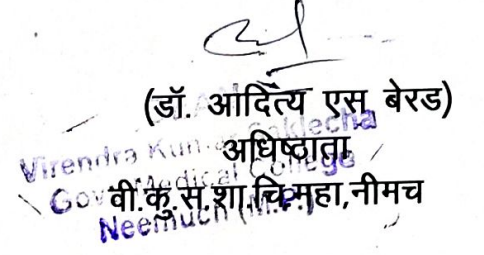 (डॉ. आदित्य एस बेरड)
अधिष्ठाता
वी.कु.स.शा.चि.महा,नीमच
Virendra Kumar Saklecha
Gov. Medical College
Neemuch (M.P.)